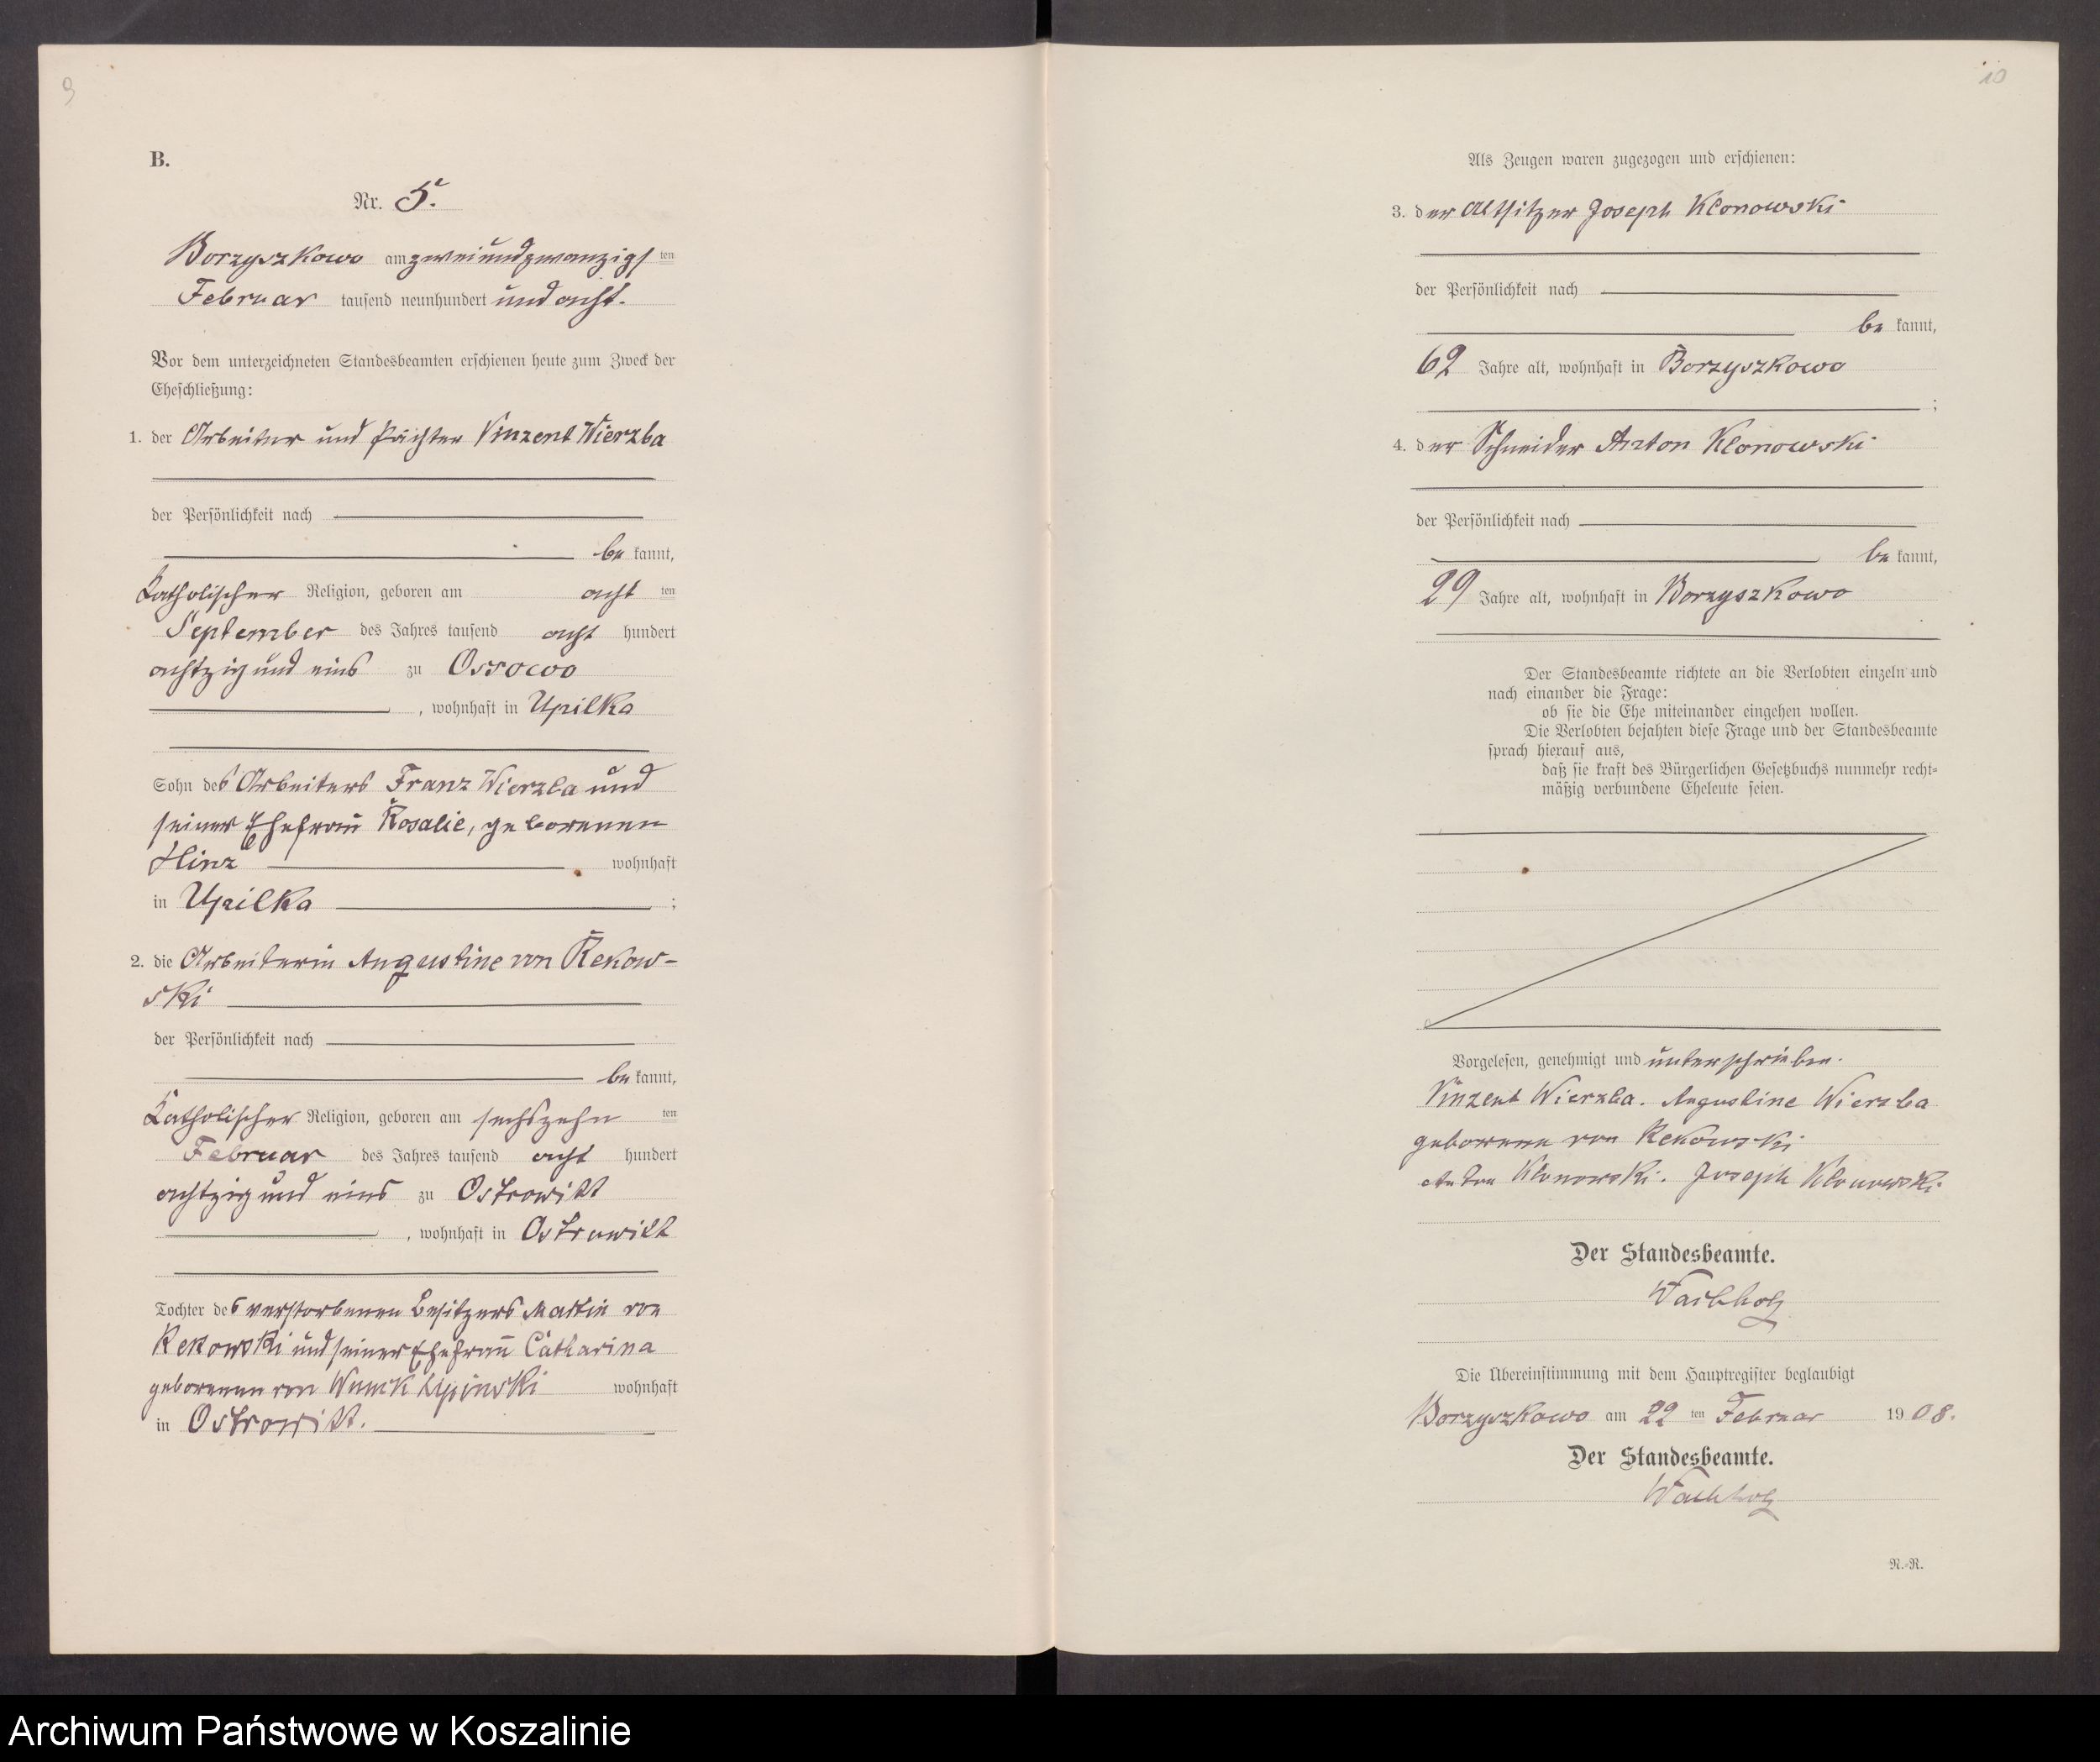 9
B.
Nr. 5.
Borzyszkowo am zweiundzwanzigsten
Februar tausend neunhundert und acht.
Vor dem unterzeichneten Standesbeamten erschienen heute zum Zweck der
Eheschließung:
1. der Arbeiter und Pächter Vinzent Wierzba
der Persönlichkeit nach
bekannt,
Katholischer Religion, geboren am acht ten
September des Jahres tausend acht hundert
achtzig und eins zu Ossowo
, wohnhaft in Upilka
Sohn des Arbeiters Franz Wierzba und
seiner Ehefrau Rosalie, geborenen
Hinz wohnhaft
in Upilka ;
2. die Arbeiterin Augustine von Rekow-
ski
der Persönlichkeit nach
bekannt,
Katholischer Religion, geboren am sechszehn ten
Februar des Jahres tausend acht hundert
achtzig und eins zu Ostrowitt
, wohnhaft in Ostrowitt
Tochter des verstorbenen Besitzers Martin von
Rekowski und seiner Ehefrau Catharina
geborenen von Lipinski wohnhaft
in Ostrowitt.
10
Als Zeugen waren zugezogen und erschienen:
3. der Altsitzer Joseph Klonowski
der Persönlichkeit nach
bekannt,
62 Jahre alt, wohnhaft in Borzyszkowo
;
4. der Schneider Anton Klonowski
der Persönlichkeit nach
bekannt,
29 Jahre alt, wohnhaft in Borzyszkowo
Der Standesbeamte richtete an die Verlobten einzeln und
nach einander die Frage:
ob sie die Ehe miteinander eingehen wollen.
Die Verlobten bejahten diese Frage und der Standesbeamte
sprach hierauf aus,
daß sie kraft des Bürgerlichen Gesetzbuchs nunmehr recht-
mäßig verbundene Eheleute seien.
Vorgelesen, genehmigt und unterschrieben.
Vinzent Wierzba. Augustine Wierzba
geborene von Rekowski
Anton Klonowski. Joseph Klonowski.
Der Standesbeamte.
Wachholz
Die Übereinstimmung mit dem Hauptregister beglaubigt
Borzyszkowo am 22 ten Februar 1908.
Der Standesbeamte.
Wachholz
N.-R.
Archiwum Państwowe w Koszalinie